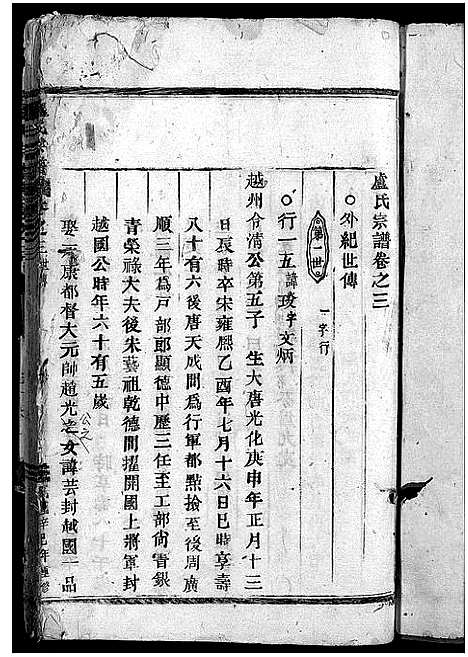 盧氏宗譜卷之三
○外紀世傳
第一世 一字行
○行一五諱琁字文炳
越州令清公第五子 生大唐光化庚申年正月十三
日辰時卒宋雍熙乙酉年七月十六日巳時享壽
八十有六後唐天成間爲行軍都點撿至後周廣
順三年爲戸部郎顯德中歷三任至工部尙書銀
青榮祿大夫後朱藝祖乾德間擢開國上將軍封
越國公時年六十有五歲
娶永康都督大元帥趙光之公之女諱芸封越國一品